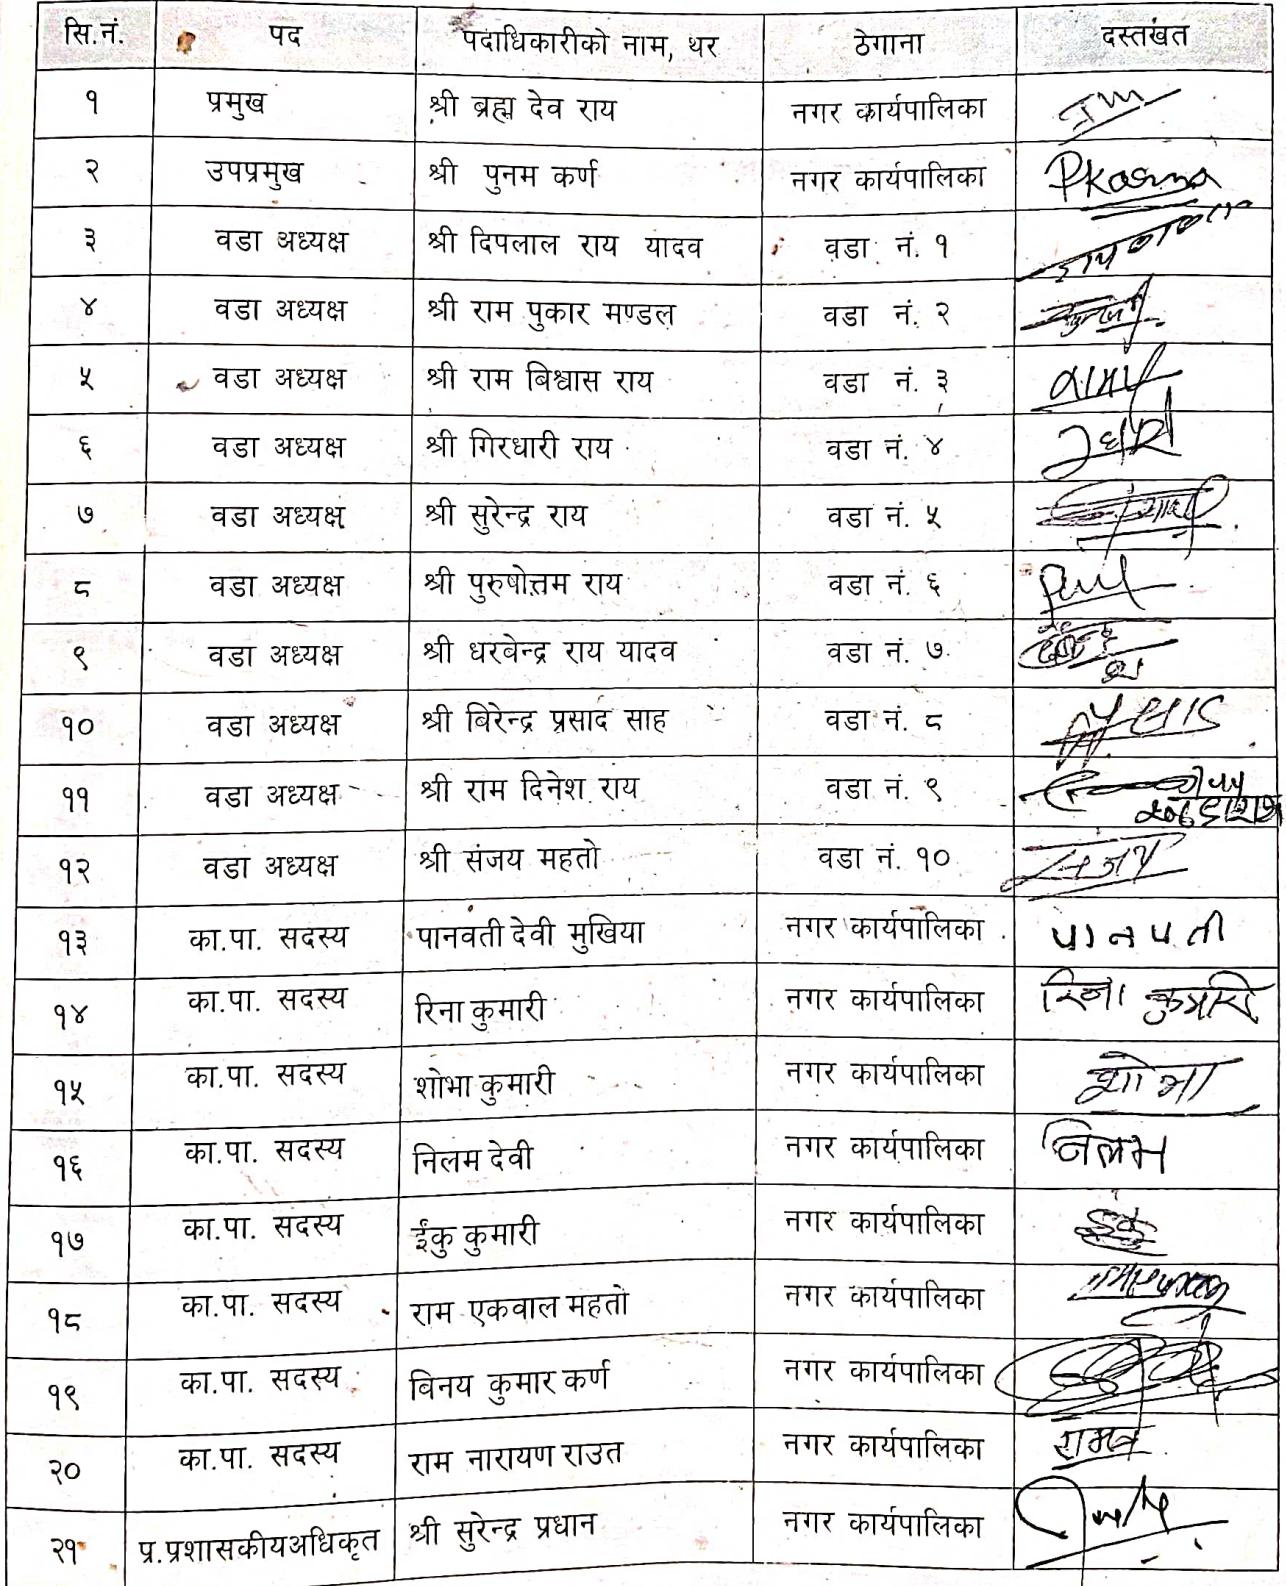 सि.नं. पद पदाधिकारीको नाम, थर ठेगाना दस्तखत
१ प्रमुख श्री ब्रह्म देव राय नगर कार्यपालिका
२ उपप्रमुख श्री पुनम कर्ण नगर कार्यपालिका PKarna
३ वडा अध्यक्ष श्री दिपलाल राय यादव वडा नं. १
४ वडा अध्यक्ष श्री राम पुकार मण्डल वडा नं. २
५ वडा अध्यक्ष श्री राम बिश्वास राय वडा नं. ३
६ वडा अध्यक्ष श्री गिरधारी राय वडा नं. ४
७ वडा अध्यक्ष श्री सुरेन्द्र राय वडा नं. ५
८ वडा अध्यक्ष श्री पुरुषोत्तम राय वडा नं. ६
९ वडा अध्यक्ष श्री धरबेन्द्र राय यादव वडा नं. ७
१० वडा अध्यक्ष श्री बिरेन्द्र प्रसाद साह वडा नं. ८
११ वडा अध्यक्ष श्री राम दिनेश राय वडा नं. ९
१२ वडा अध्यक्ष श्री संजय महतो वडा नं. १० संजय
१३ का.पा. सदस्य पानवती देवी मुखिया नगर कार्यपालिका पानपती
१४ का.पा. सदस्य रिना कुमारी नगर कार्यपालिका रिना कुमारी
१५ का.पा. सदस्य शोभा कुमारी नगर कार्यपालिका शोभा
१६ का.पा. सदस्य निलम देवी नगर कार्यपालिका निलम
१७ का.पा. सदस्य ईंकु कुमारी नगर कार्यपालिका
१८ का.पा. सदस्य राम एकवाल महतो नगर कार्यपालिका
१९ का.पा. सदस्य विनय कुमार कर्ण नगर कार्यपालिका
२० का.पा. सदस्य राम नारायण राउत नगर कार्यपालिका
२१ प्र.प्रशासकीयअधिकृत श्री सुरेन्द्र प्रधान नगर कार्यपालिका